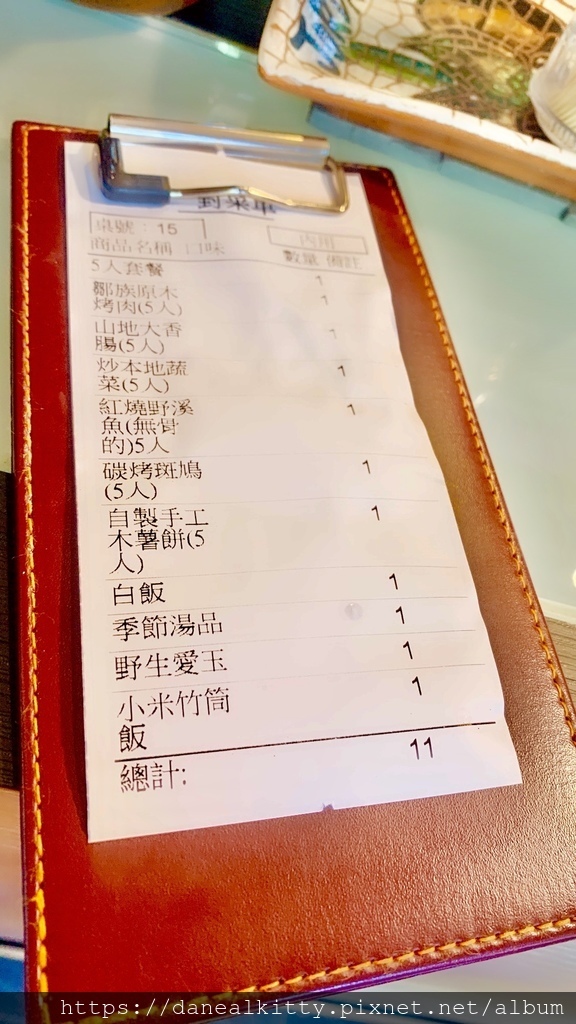 對菜單
桌號：15
內用
商品名稱 口味 數量 備註
5人套餐 1
鄒族原木 1
烤肉(5人)
山地大香 1
腸(5人)
炒本地蔬 1
菜(5人)
紅燒野溪 1
魚(無骨
的)5人
碳烤斑鳩 1
(5人)
自製手工 1
木薯餅(5
人)
白飯 1
季節湯品 1
野生愛玉 1
小米竹筒 1
飯
總計: 11
https://danealkitty.pixnet.net/album